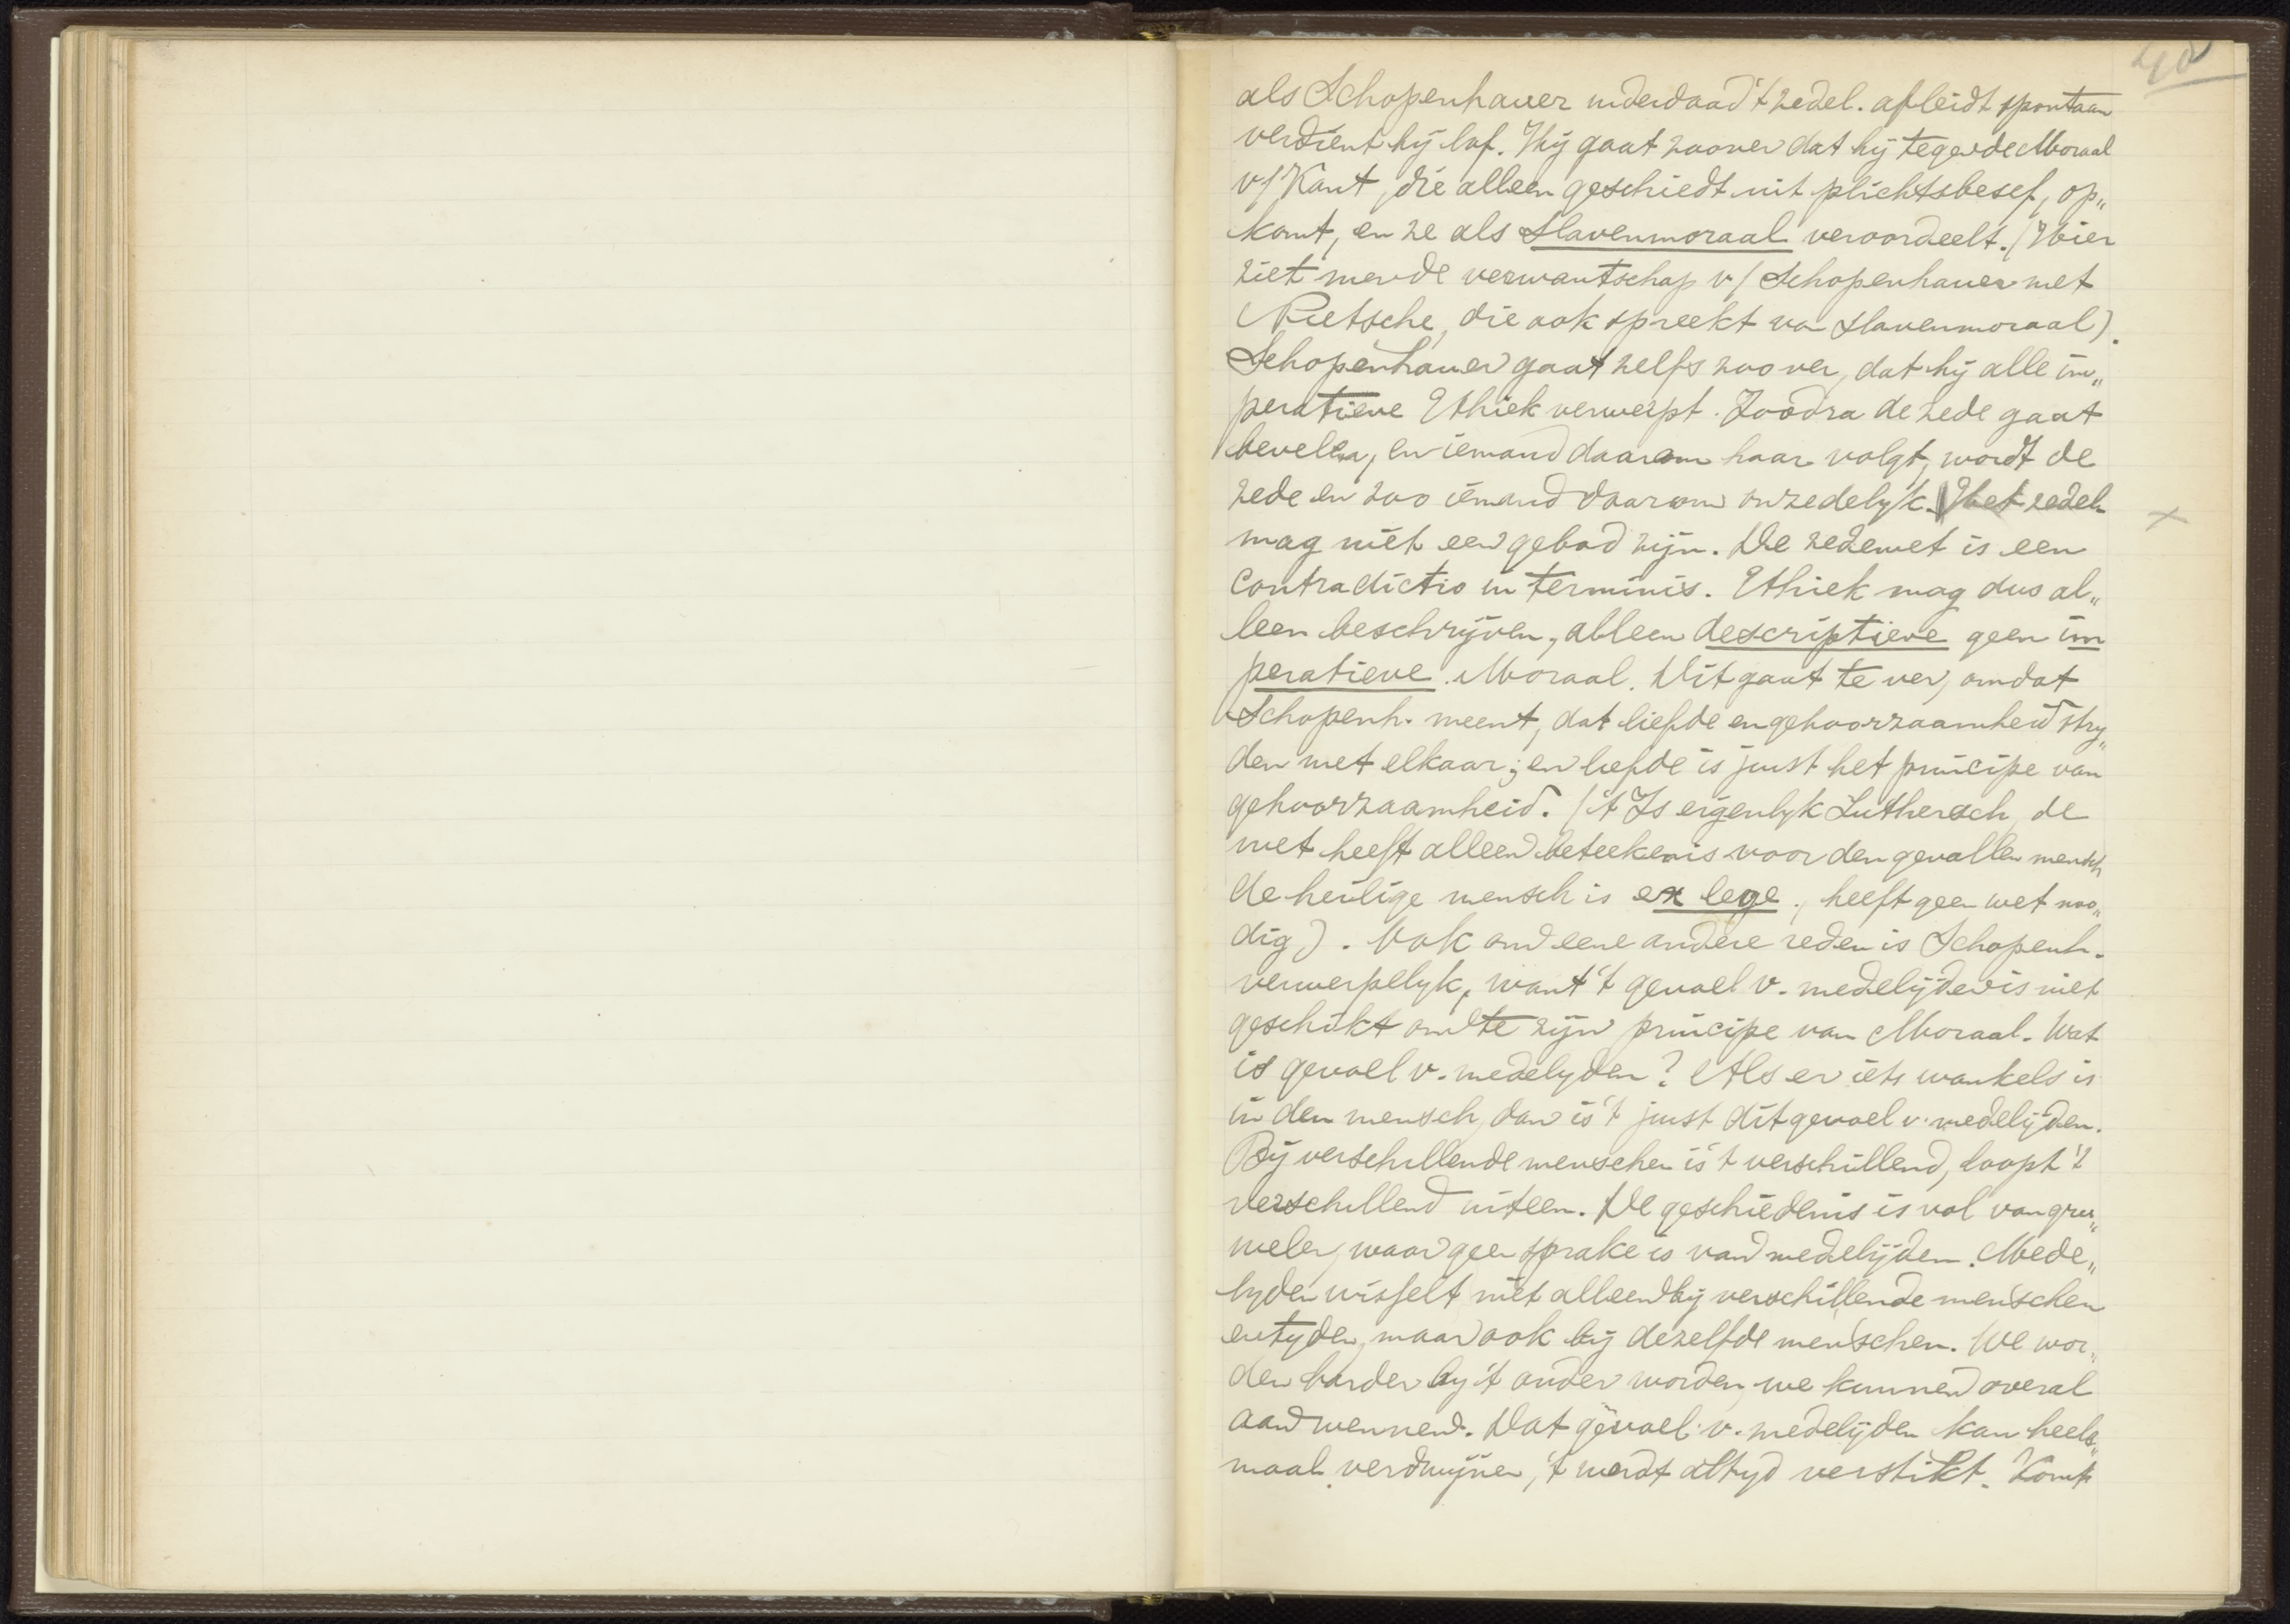 40
als Schopenhauer inderdaad 't zedel. afleidt spontaan
verdient hij lof. Hij gaat zoover dat hij tegen de Moraal
v/ Kant, die alleen geschiedt uit plichtsbesef, op„
komt, en ze als slavenmoraal veroordeelt. (Hier
ziet men de verwantschap v/ Schopenhauer met
Nietsche, die ook spreekt van slavenmoraal).
Schopenhauer gaat zelfs zoover, dat hij alle im„
peratieve Ethiek verwerpt. Zoodra de zede gaat
bevelen, en iemand daarom haar volgt, wordt de
zede en zoo iemand daarom onzedelijk. Het zedel.
mag niet een gebod zijn. De zedewet is een
contradictio in terminis. Ethiek mag dus al„
leen beschrijven, alleen descriptieve geen im
peratieve Moraal. Dit gaat te ver, omdat
Schopenh. meent, dat liefde en gehoorzaamheid stry„
den met elkaar; en liefde is juist het principe van
gehoorzaamheid. ('t Is eigenlyk Luthersch, de
wet heeft alleen beteekenis voor den gevallen mensch
de heilige mensch is ex lege, heeft geen wet noo„
dig). Ook om eene andere reden is Schopenh.
verwerpelyk, want 't gevoel v. medelijden is niet
geschikt om te zijn principe van Moraal. Wat
is gevoel v. medelyden? Als er iets wankels is
in den mensch, dan is 't juist dit gevoel v. medelijden.
Bij verschillende menschen is 't verschillend, loopt 't
verschillend uiteen. De geschiedenis is vol van gru„
welen, waar geen sprake is van medelijden. Mede„
lyden wisselt niet alleen bij verschillende menschen
en tyden, maar ook bij dezelfde menschen. We wor„
den harder by 't ouder worden, we kunnen overal
aan wennen. Dat gevoel v. medelijden kan heele„
maal verdwijnen, 't wordt altyd verstikt. Komt